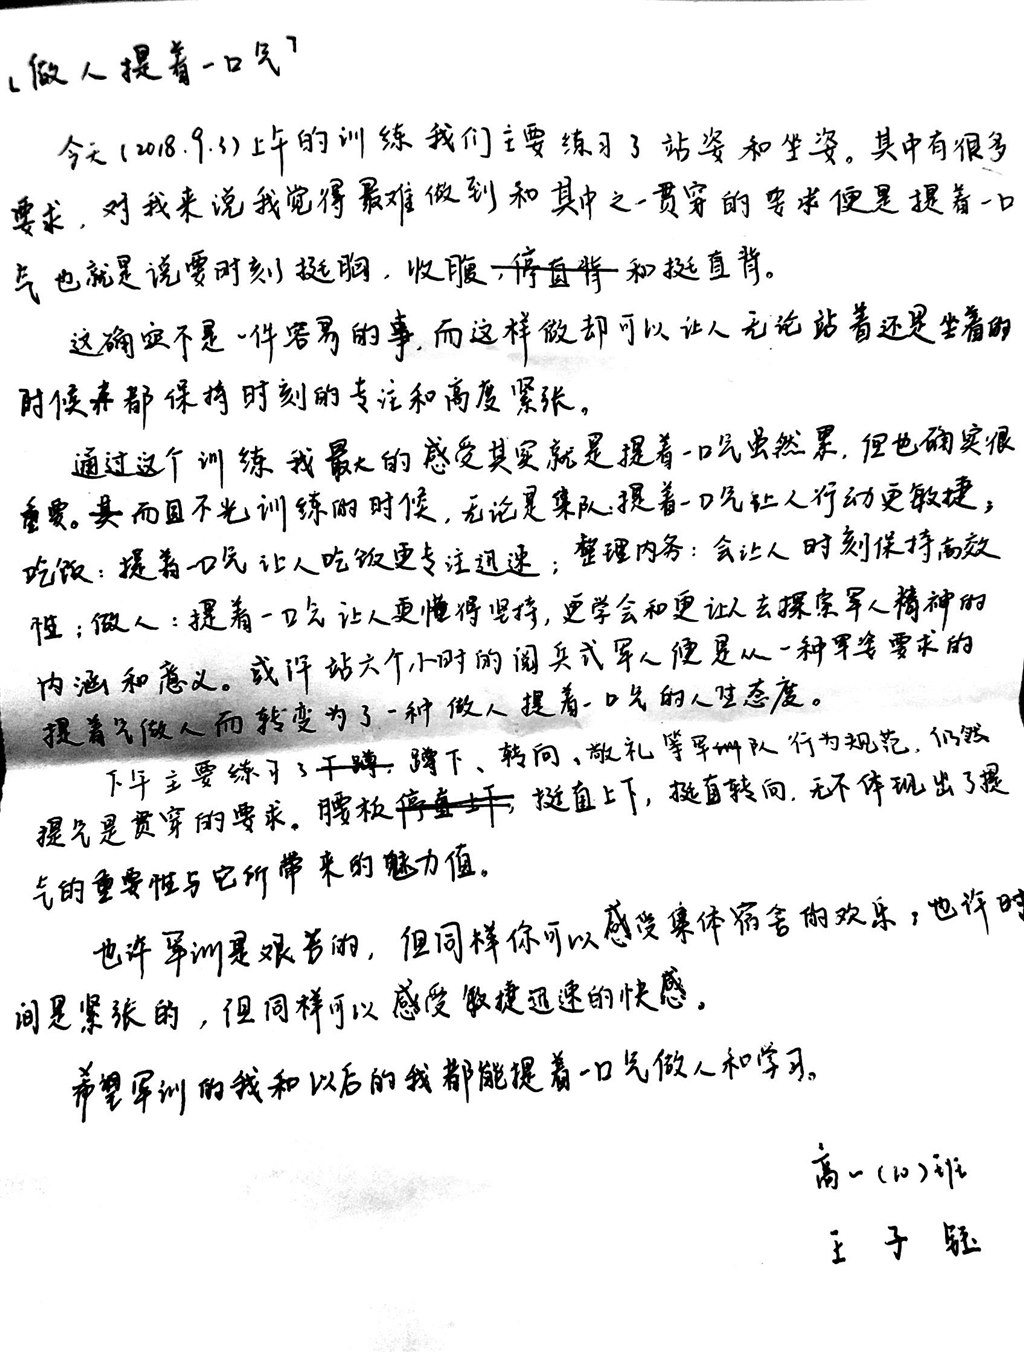 「做人提着一口气」
今天(2018.9.3)上午的训练我们主要练习了站姿和坐姿。其中有很多
要求,对我来说我觉得最难做到和其中之一贯穿的要求便是提着一口
气也就是说要时刻挺胸,收腹,停直背和挺直背。
这确实不是一件容易的事,而这样做却可以让人无论站着还是坐着的
时候来都保持时刻的专注和高度紧张。
通过这个训练我最大的感受其实就是提着一口气虽然累,但也确实很
重要。其而且不光训练的时候,无论是集队:提着一口气让人行动更敏捷;
吃饭:提着一口气让人吃饭更专注迅速;整理内务:会让人时刻保持高效
性;做人:提着一口气让人更懂得坚持,更学会和更让人去探索军人精神的
内涵和意义。或许站六个小时的阅兵式军人便是从一种军姿要求的
提着气做人而转变为了一种做人提着一口气的人生态度。
下午主要练习了下蹲,蹲下、转向、敬礼等军训队行为规范,仍然
提气是贯穿的要求。腰板停直上下,挺直上下,挺直转向,无不体现出了提
气的重要性与它所带来的魅力值。
也许军训是艰苦的,但同样你可以感受集体宿舍的欢乐;也许时
间是紧张的,但同样可以感受敏捷迅速的快感。
希望军训的我和以后的我都能提着一口气做人和学习。
高一(10)班
王子钰